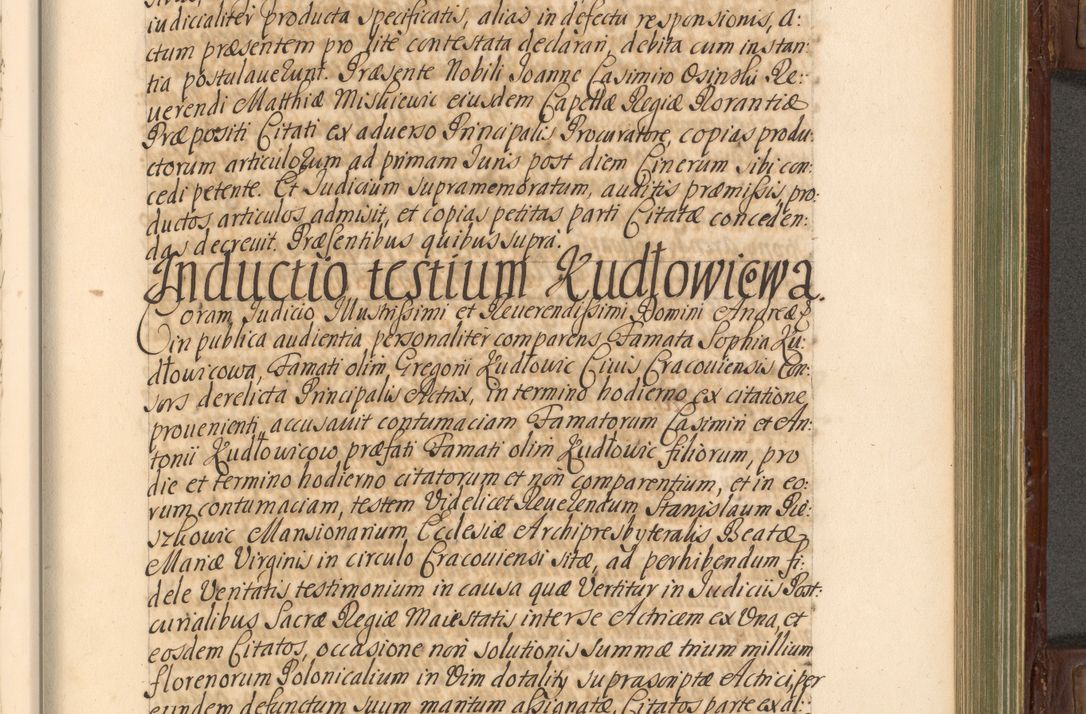 iudicialiter producta specificatis, alias in defectu responsionis, a:
ctum præsentem pro litè contestata declarari, debita cum instan:
tia postulauerunt. Præsente Nobili Joanne Casimiro Osipski Re:
uerendi Matthiæ Miskiewic eiusdem Capellæ Regiæ Rorantiæ
Præpositi Citati ex aduerso Principalis Procuratore, copias produ:
ctorum articulorum ad primam Juris post diem Cinerum sibi con:
cedi petente. Et Judicium supramemoratum, auditis præmissis, pro:
ductos articulos admisit, et copias petitas parti Citatæ conceden:
das decreuit. Præsentibus quibus supra.
Inductio testium Kudłowiewa.
Coram Judicio Illustrissimi et Reuerendissimi Domini Andreæ
in publica audientia personaliter comparens Famata Sophia Ku:
dłowicowa, Famati olim Gregorii Kudłowic Ciuis Cracouiensis Con:
sors derelicta Principalis Actrix, in termino hodierno ex citatione
prouenienti, accusauit contumaciam Famatorum Casimiri et An:
tonii Kudłowicow præfati Famati olim Kudłowic filiorum, pro
die et termino hodierno citatorum et non comparentium, et in eo:
rum contumaciam, testem Videlicet Reuerendum Stanislaum Pie:
szkowic Mansionarium Ecclesiæ Archipresbyteralis Beatæ
Mariæ Virginis in circulo Cracouiensi sitæ, ad perhibendum fi:
dele Veritatis testimonium in causa quæ Vertitur in Judiciis Post:
curialibus Sacræ Regiæ Maiestatis inter se Actricem ex Vna, et
eosdem Citatos, occasione non solutionis summæ trium millium
florenorum Polonicalium in Vim dotality suprascriptæ Actrici, per
eundem defunctum suum maritum assignatæ, Citatos parte ex al: